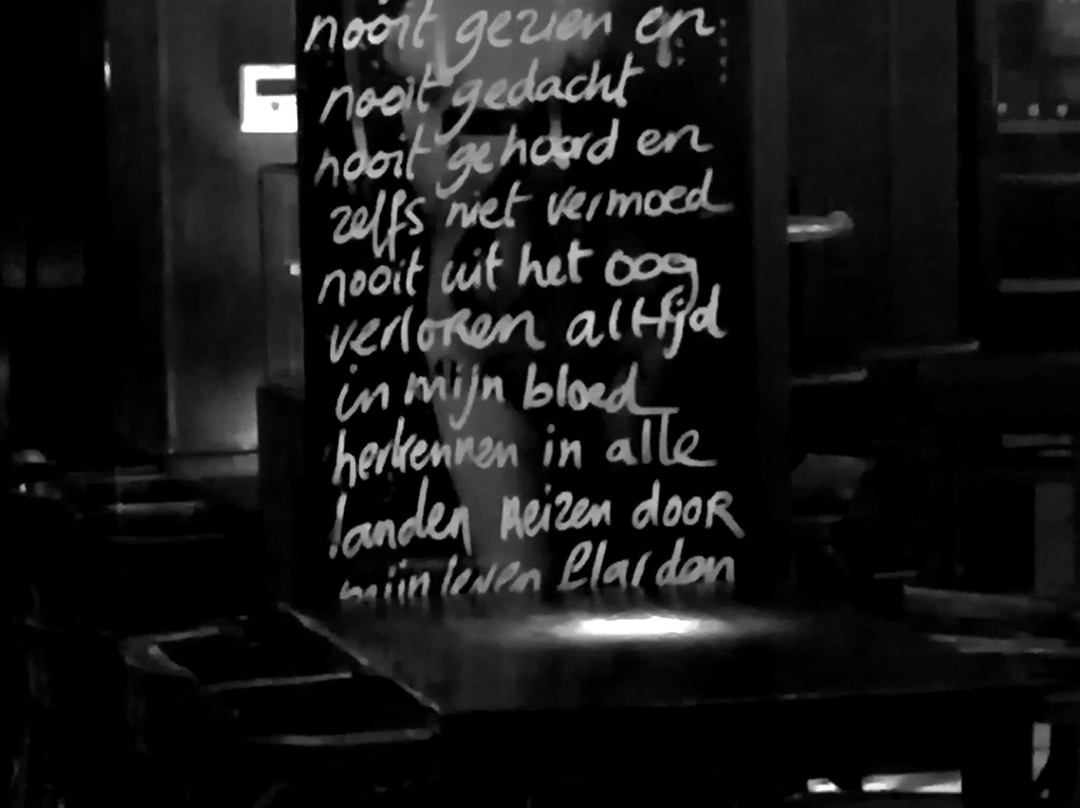 nooit gezien en
nooit gedacht
nooit gehoord en
zelfs niet vermoed
nooit uit het oog
verloren altijd
in mijn bloed
herkennen in alle
landen reizen door
mijn leven flarden